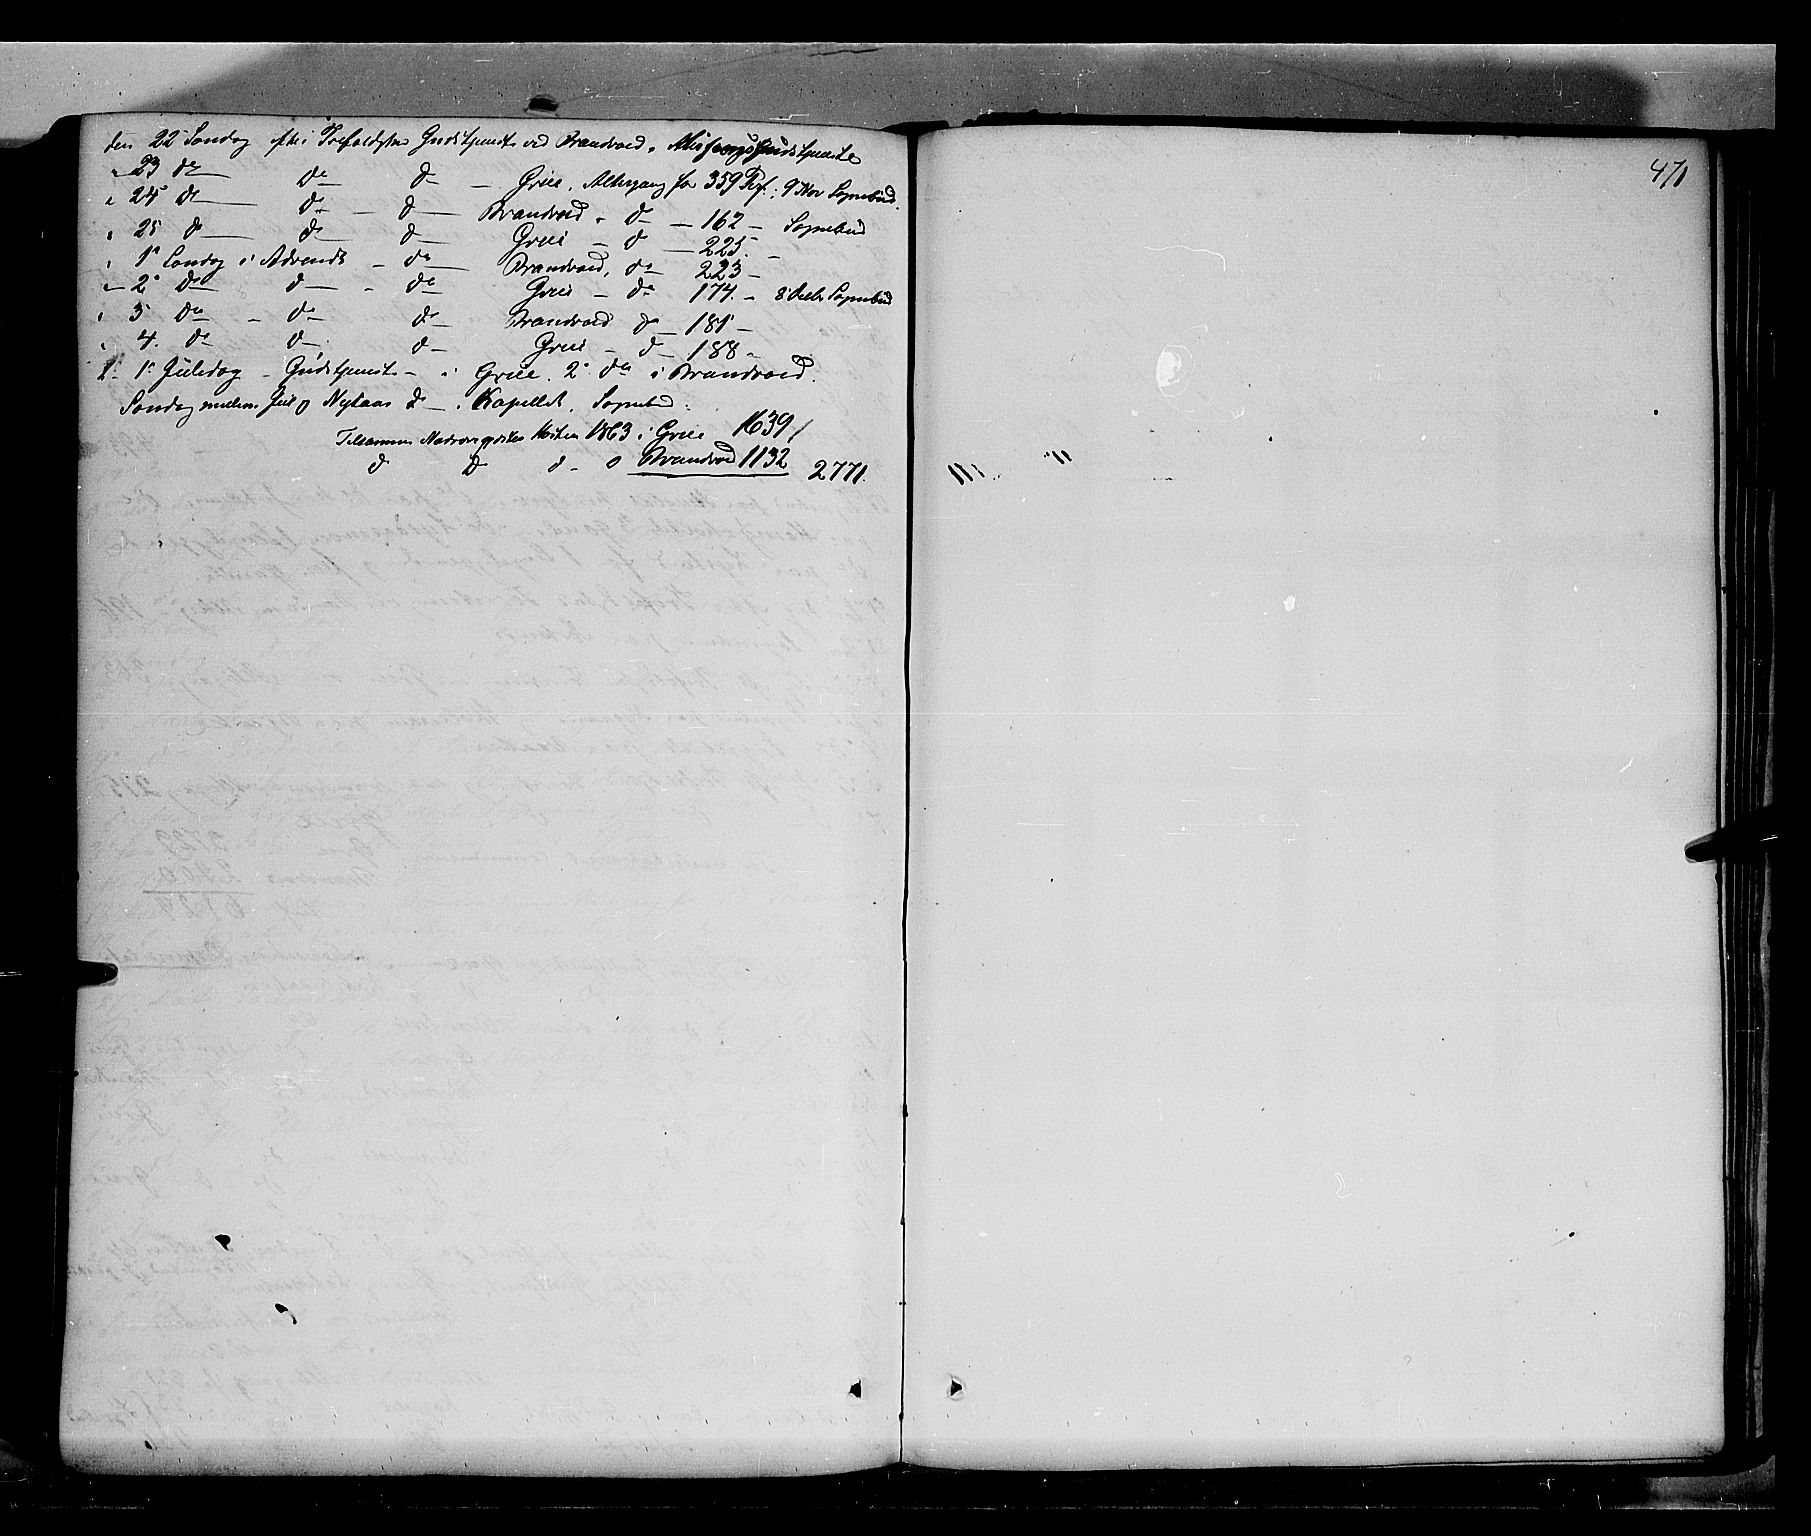 den 22 Søndag efter Trefoldighed Gudstjeneste ved Brandvold,
" 23 do do do Grue, Altergang for 359 Prs; 9 Nov Sognebud.
" 24 do do do Brandvold, do 162 Sognebud
" 25 do do do Grue do 225
" 1e Søndag i Advendt do Brandvold, do 223
" 2e do do do Grue do 174 8 Decbr Sognebud
" 3 do do do Brandvold do 181
" 4. do do do Grue do 188
1e Juledag Gudstjeneste i Grue. 2e do i Brandvold.
Søndag mellem Juul og Nytaar do i Kapellet. Sognebud.
Tilsammen Høsten 1863 i Grue 1639
d d d o Brandvold 1132 2771.
471